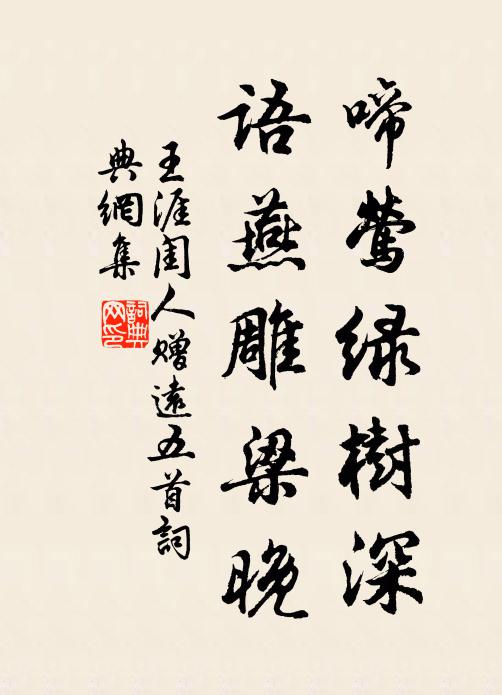 啼鶯緑樹深
語燕雕梁晚
王涯閨人贈遠五首詞
典網集
詞典网印